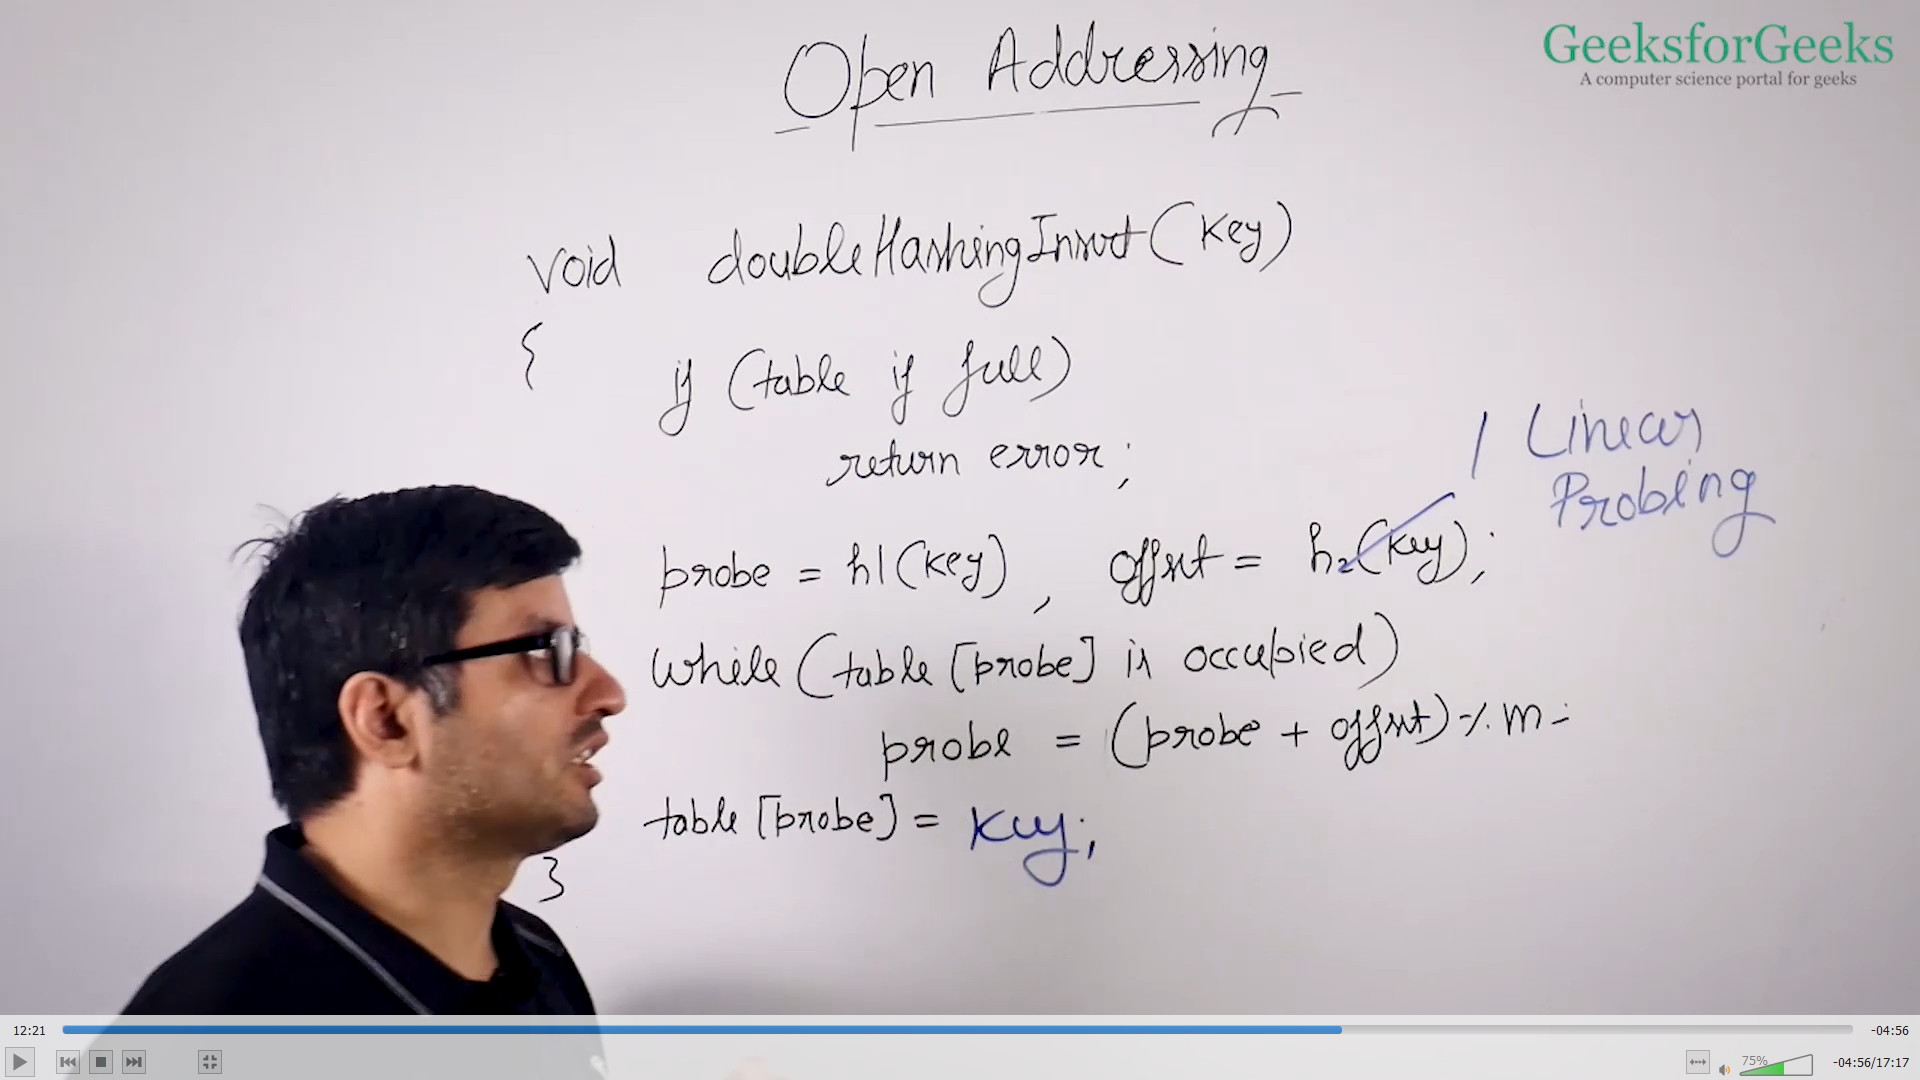 Open Addressing
GeeksforGeeks
A computer science portal for geeks
void doubleHashingInsert(key)
{
if (table if full)
return error;
1 Linear
Probing
probe = h1(key), offset = h2(key);
while (table [probe] is occupied)
probe = (probe + offset) % m;
table [probe] = key;
}
12:21
-04:56
75%
-04:56/17:17